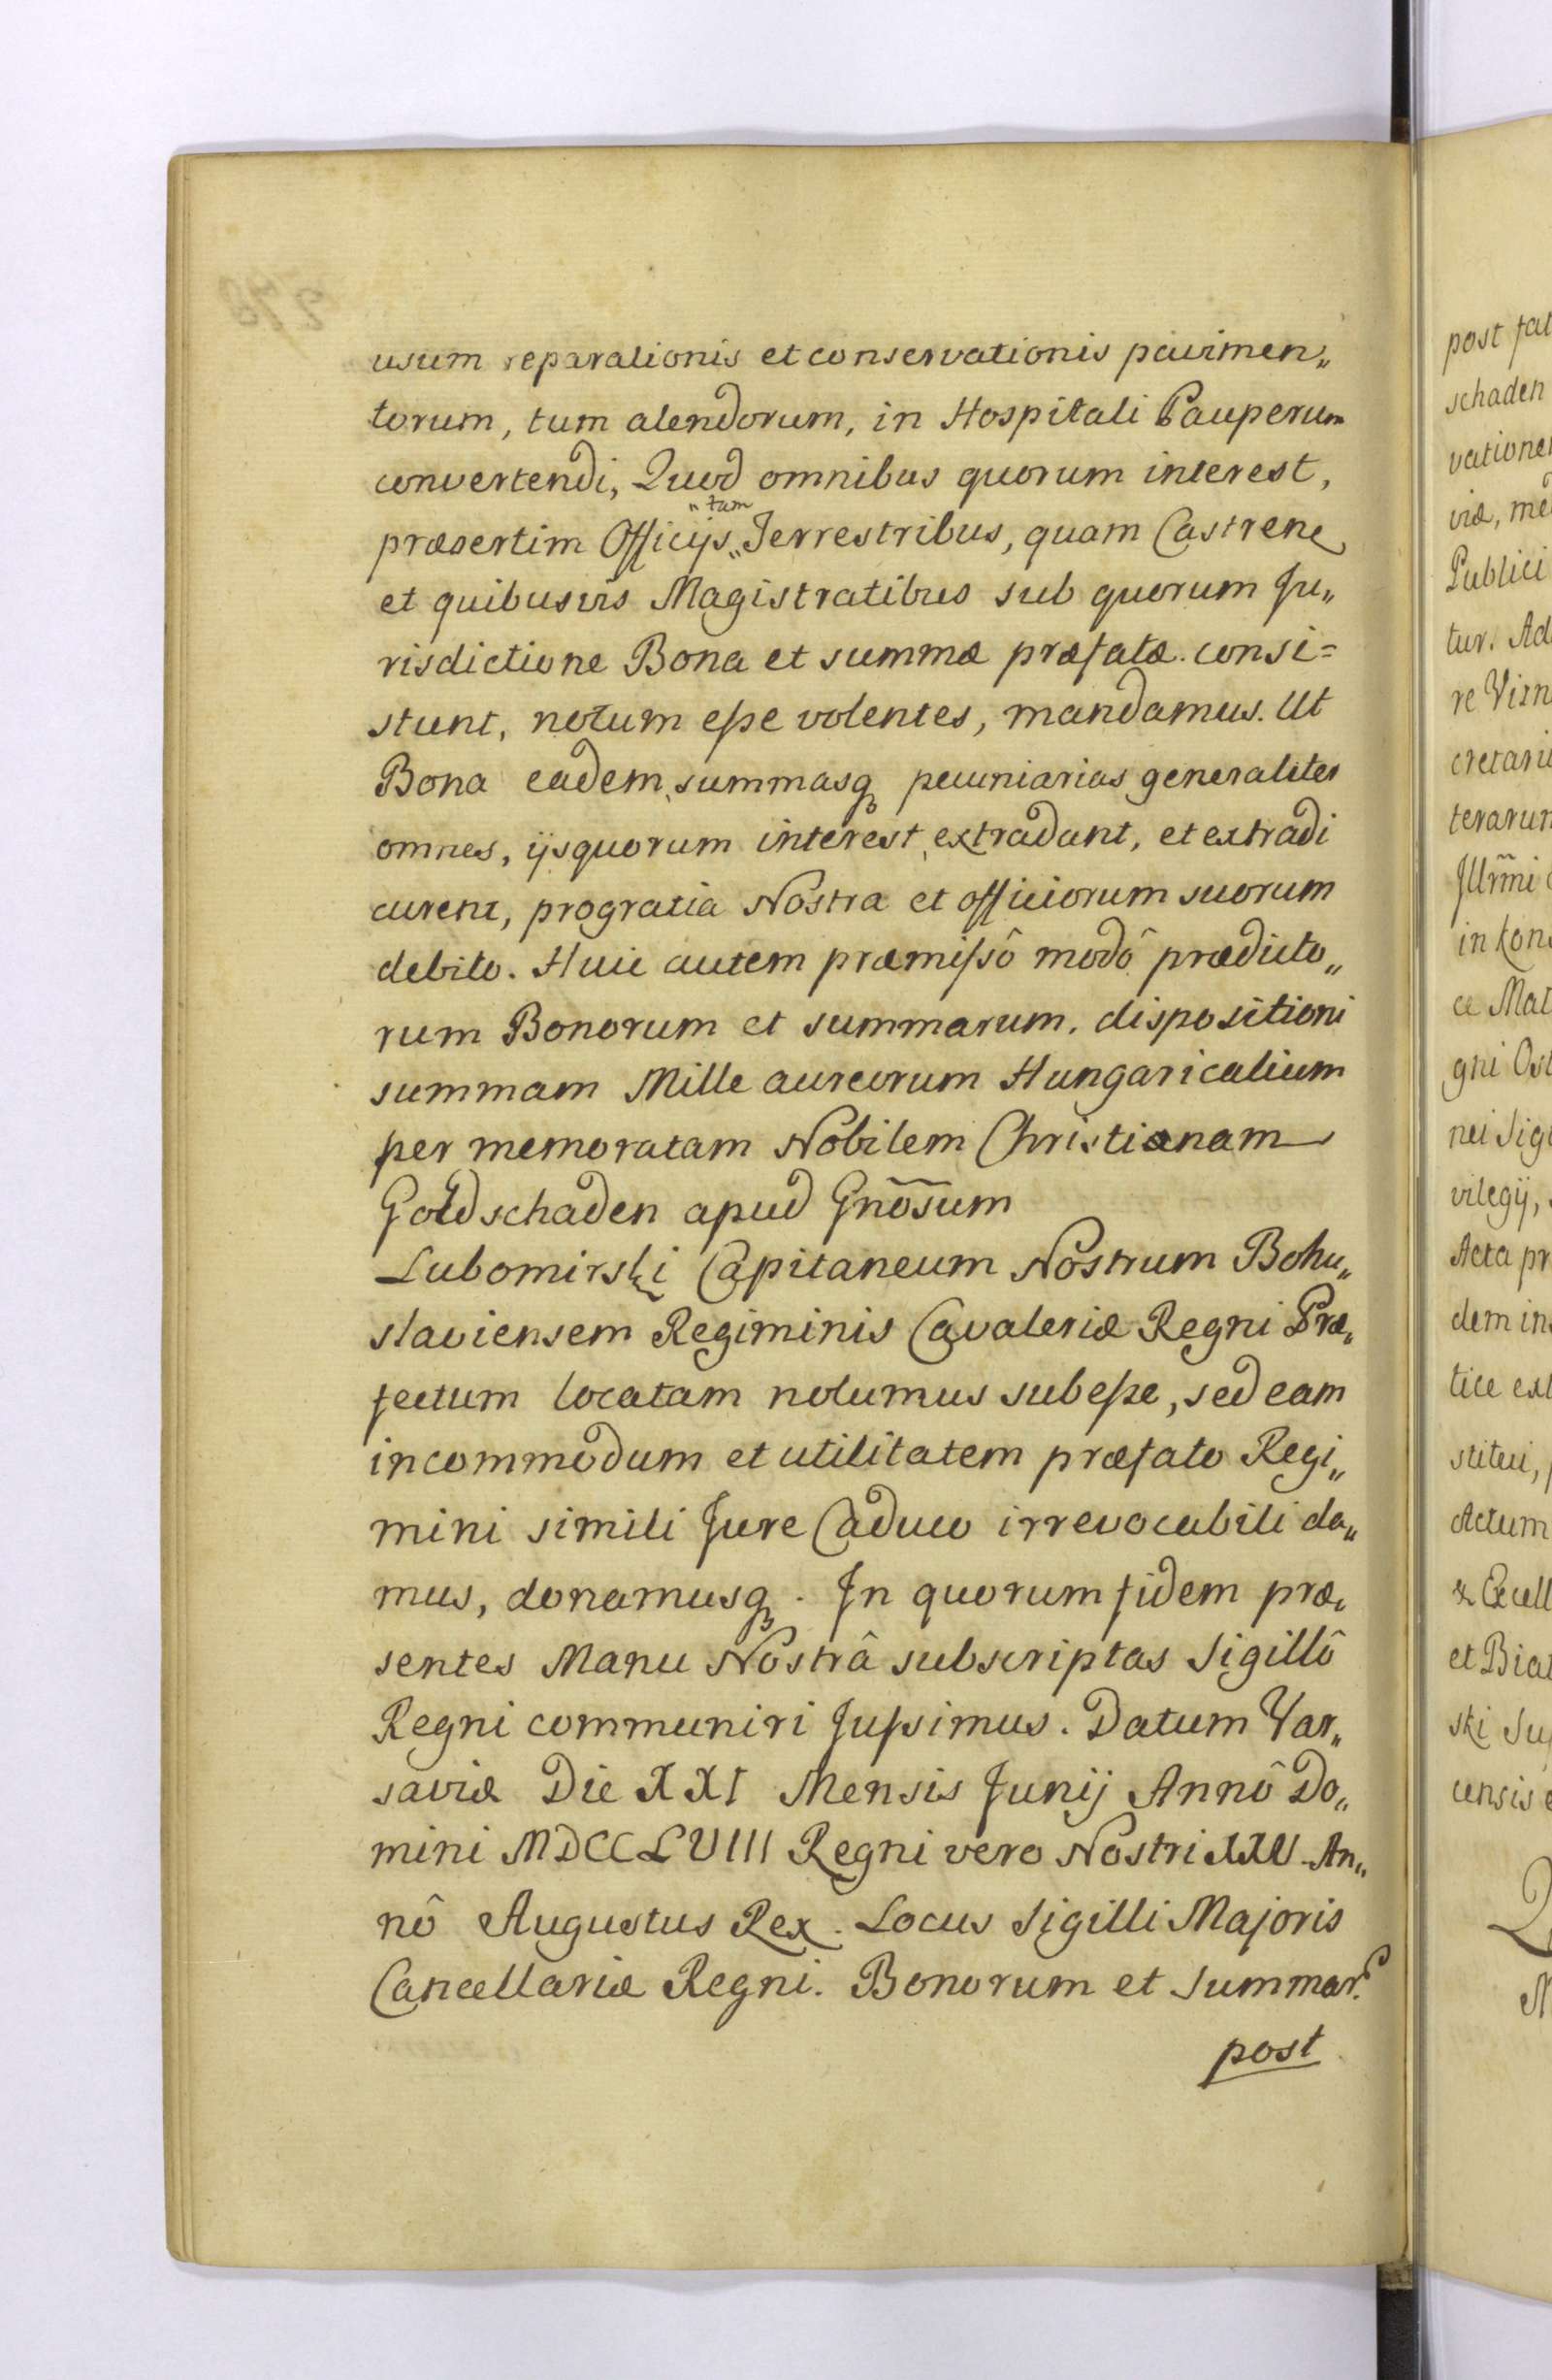 usum reparationis et conservationis pavimen„
torum, tum alendorum, in Hospitali Pauperum
convertendi, Quod omnibus quorum interest,
„tam
præsertim Officijs„Terrestribus, quam Castrene
et quibusvis Magistratibus sub quorum Ju„
risdictione Bona et summæ præfatæ consi=
stunt, notum eſse volentes, mandamus. Ut
Bona eadem, summasq pecuniarias generaliter
omnes, ijsquorum interest, extradant, et extradi
curent, progratia Nostra et officiorum suorum
debito. Huic autem præmiſsô modô prædicto„
rum Bonorum et summarum, dispositioni
summam Mille aureorum Hungaricalium
per memoratam Nobilem Christianam
Goldschaden apud Gnõsum
Lubomirski Capitaneum Nostrum Bohu„
slaviensem Regiminis Cavaleriæ Regni Præ„
fectum locatam nolumus subeſse, sed eam
incommodum et utilitatem præfato Regi„
mini simili Jure Caduco irrevocabili da„
mus, donamusq. In quorum fidem præ„
sentes Manu Nostrâ subscriptas Sigillô
Regni communiri Juſsimus. Datum Var„
saviæ Die XXI Mensis Junij Annô Do„
mini MDCCLVIII Regni vero Nostri XXV An„
nô Augustus Rex. Locus Sigilli Majoris
Cancellariæ Regni. Bonorum et Summar.
post
278
post fat
schaden
vatione
viæ, me
Publici
tur. Ad
re Virn
cretari
terarum
Jllrm̃i
in Kon
ce Mat
gni Ost
nei Sigi
vilegij,
Acta pr
dem in
tice ext
stitui,
Actum
& Excell
et Bia
ski Su
censis